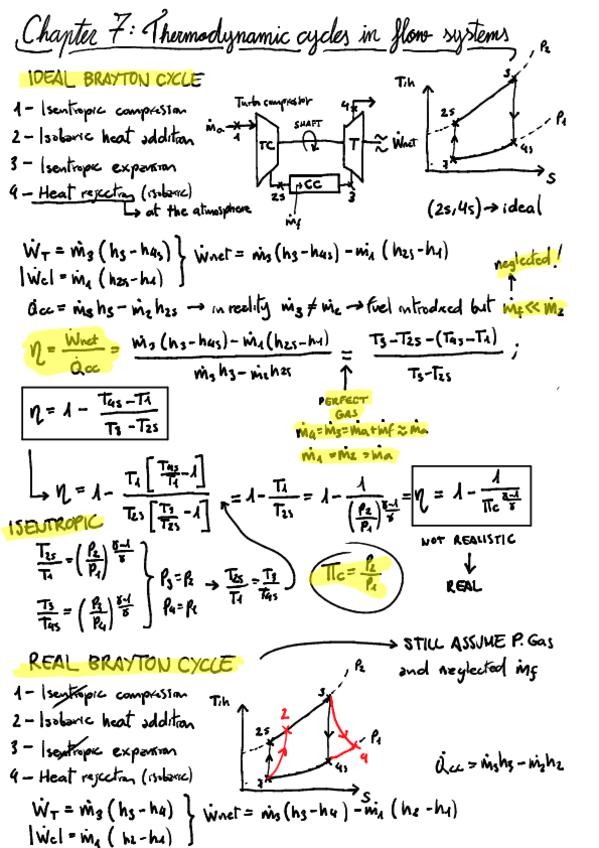 Chapter 7: Thermodynamic cycles in flow systems
IDEAL BRAYTON CYCLE
1 - Isentropic compression
2 - Isobaric heat addition
3 - Isentropic expansion
4 - Heat rejection (isobaric)
↳ at the atmosphere
Turbo compressor
ṁa
1
TC
SHAFT
T
4s
Ẇnet
2s
CC
3
ṁf
T,h
P2
3
2s
P1
4s
1
S
(2s,4s) → ideal
ẆT = ṁ3 (h3-h4s)
|Ẇc| = ṁ1 (h2s-h1)
Ẇnet = ṁ3 (h3-h4s) - ṁ1 (h2s-h1)
neglected!
Q̇cc = ṁ3h3 - ṁ2h2s → in reality ṁ3 ≠ ṁ2 → fuel introduced but ṁf << ṁ2
η = Ẇnet/Q̇cc = (ṁ3 (h3-h4s) - ṁ1 (h2s-h1))/(ṁ3h3 - ṁ2h2s) = (T3-T2s-(T4s-T1))/(T3-T2s) ;
PERFECT
GAS
ṁ4 = ṁ3 = ṁa + ṁf ≈ ṁa
ṁ1 = ṁ2 = ṁa
η = 1 - (T4s-T1)/(T3-T2s)
↳ η = 1 - T1[T4s/T1 -1]/T2s[T3/T2s -1] = 1 - T1/T2s = 1 - 1/(P2/P1)^(γ-1/γ) = η = 1 - 1/Πc^(γ-1/γ)
ISENTROPIC
T2s/T1 = (P2/P1)^(γ-1/γ)
T3/T4s = (P3/P4)^(γ-1/γ)
P3 = P2
P4 = P1
→ T2s/T1 = T3/T4s
Πc = P2/P1
NOT REALISTIC
REAL
REAL BRAYTON CYCLE
→ STILL ASSUME P. Gas
and neglected ṁf
1 - Isentropic compression
2 - Isobaric heat addition
3 - Isentropic expansion
4 - Heat rejection (isobaric)
T,h
P2
3
2
2s
P1
4
4s
1
S
Q̇cc = ṁ3h3 - ṁ2h2
ẆT = ṁ3 (h3-h4)
|Ẇc| = ṁ1 (h2-h1)
Ẇnet = ṁ3 (h3-h4) - ṁ1 (h2-h1)